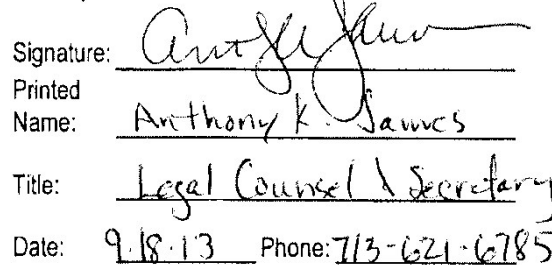 Signature:
Printed
Name: Anthony K. James
Title: Legal Counsel & Secretary
Date: 9.18.13 Phone: 713-621-6785